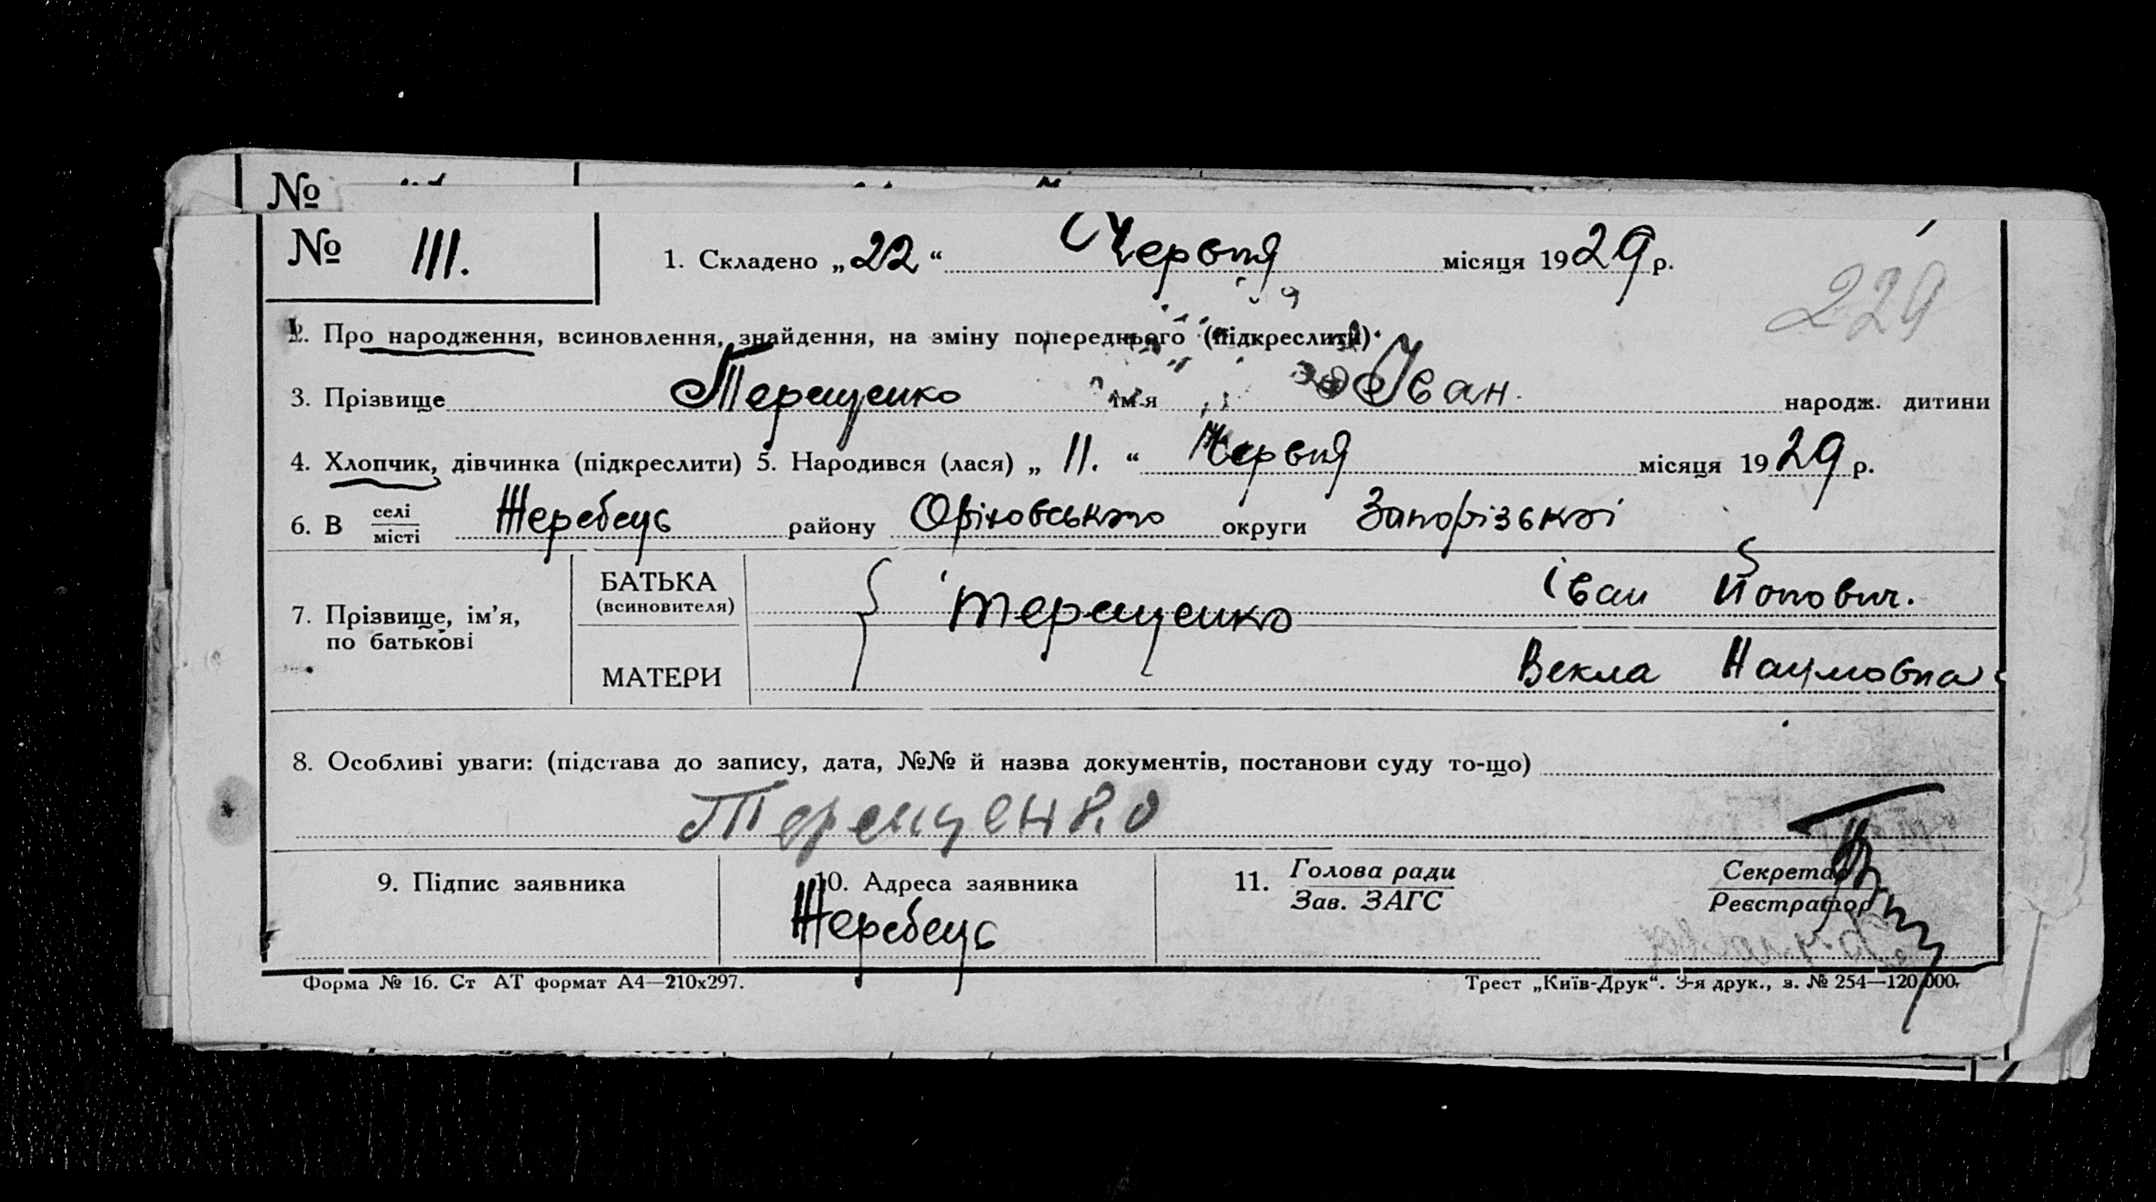 №
№ 111. 1. Складено „22“ Червня місяця 1929 р.
229
2. Про народження, всиновлення, знайдення, на зміну попереднього (підкреслити)
3. Прізвище Терещенко ім'я Іван народж. дитини
4. Хлопчик, дівчинка (підкреслити) 5. Народився (лася) „11.“ Червня місяця 1929 р.
6. В селі/місті Жеребець району Оріховського округи Запорізької
7. Прізвище, ім'я, по батькові
БАТЬКА (всиновителя) Терещенко Іван Йопович.
МАТЕРИ Векла Наумовна
8. Особливі уваги: (підстава до запису, дата, №№ й назва документів, постанови суду то-що)
Терещенко
9. Підпис заявника 10. Адреса заявника 11. Голова ради Секретар
Зав. ЗАГС Реєстратор
Жеребець
Форма № 16. Ст АТ формат А4—210х297. Трест „Київ-Друк“. 3-я друк., з. № 254—120,000.